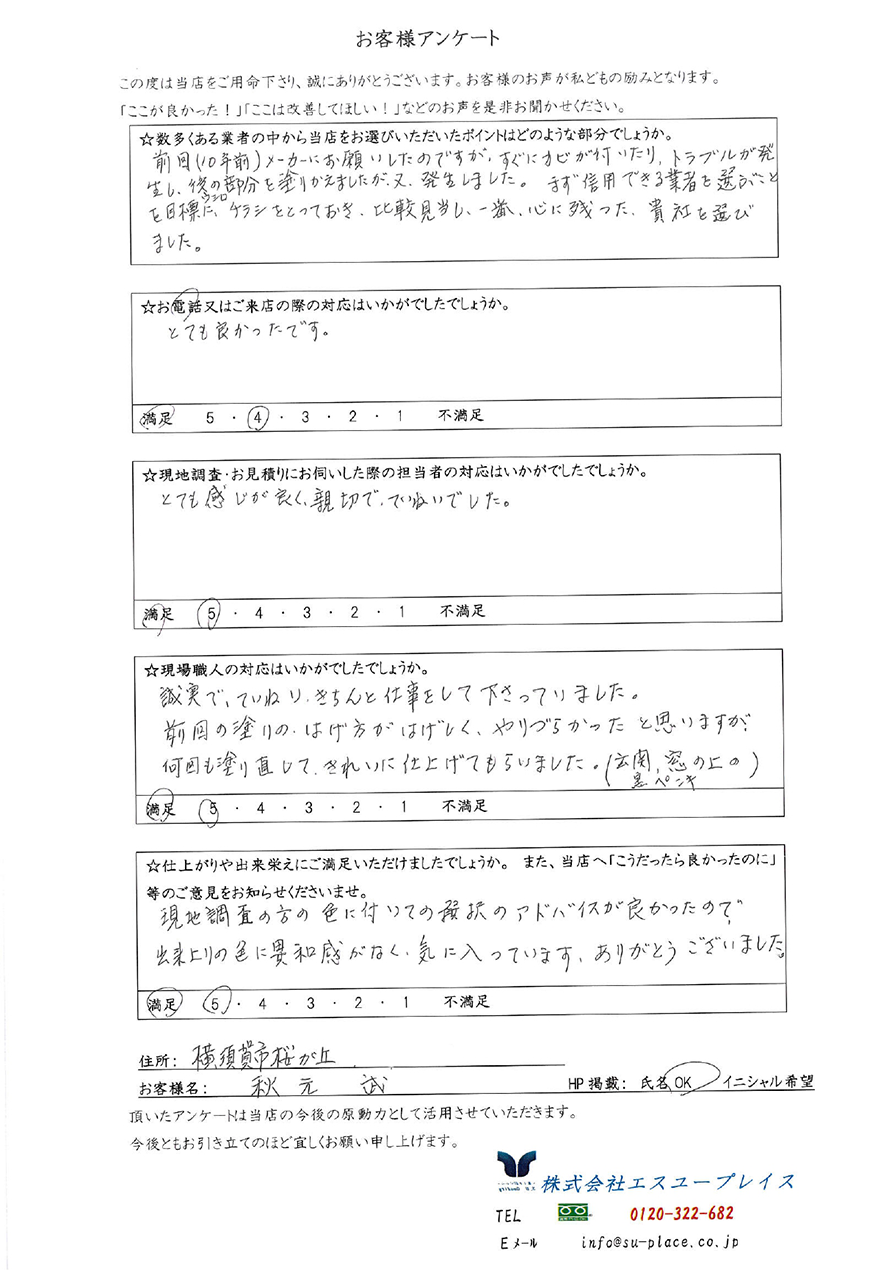 お客様アンケート
この度は当店をご用命下さり、誠にありがとうございます。お客様のお声が私どもの励みとなります。
「ここが良かった！」「ここは改善してほしい！」などのお声を是非お聞かせください。
☆数多くある業者の中から当店をお選びいただいたポイントはどのような部分でしょうか。
前回(10年前)メーカーにお願いしたのですが、すぐにカビが付いたり、トラブルが発
生し、後の部分を塗りかえましたが、又、発生しました。まず信用できる業者を選ぶこと
ウシロ
を目標に、チラシをとっておき、比較見当し、一番、心に残った、貴社を選び
ました。
☆お電話又はご来店の際の対応はいかがでしたでしょうか。
とても良かったです。
満足 5 ・ 4 ・ 3 ・ 2 ・ 1 不満足
☆現地調査・お見積りにお伺いした際の担当者の対応はいかがでしたでしょうか。
とても感じが良く、親切で、ていねいでした。
満足 5 ・ 4 ・ 3 ・ 2 ・ 1 不満足
☆現場職人の対応はいかがでしたでしょうか。
誠実で、ていねい、きちんと仕事をして下さっていました。
前回の塗りの、はげ方がはげしく、やりづらかったと思いますが、
何回も塗り直して、きれいに仕上げてもらいました。(玄関、窓の上の)
黒ペンキ
満足 5 ・ 4 ・ 3 ・ 2 ・ 1 不満足
☆仕上がりや出来栄えにご満足いただけましたでしょうか。 また、当店へ「こうだったら良かったのに」
等のご意見をお知らせくださいませ。
現地調査の方の色に付いての選択のアドバイスが良かったので
出来上りの色に異和感がなく、気に入っています、ありがとうございました。
満足 5 ・ 4 ・ 3 ・ 2 ・ 1 不満足
住所: 横須賀市桜が丘
お客様名: 秋元 武 HP掲載: 氏名OK イニシャル希望
頂いたアンケートは当店の今後の原動力として活用させていただきます。
今後ともお引き立てのほど宜しくお願い申し上げます。
株式会社エスユープレイス
TEL 0120-322-682
Eメール info@su-place.co.jp